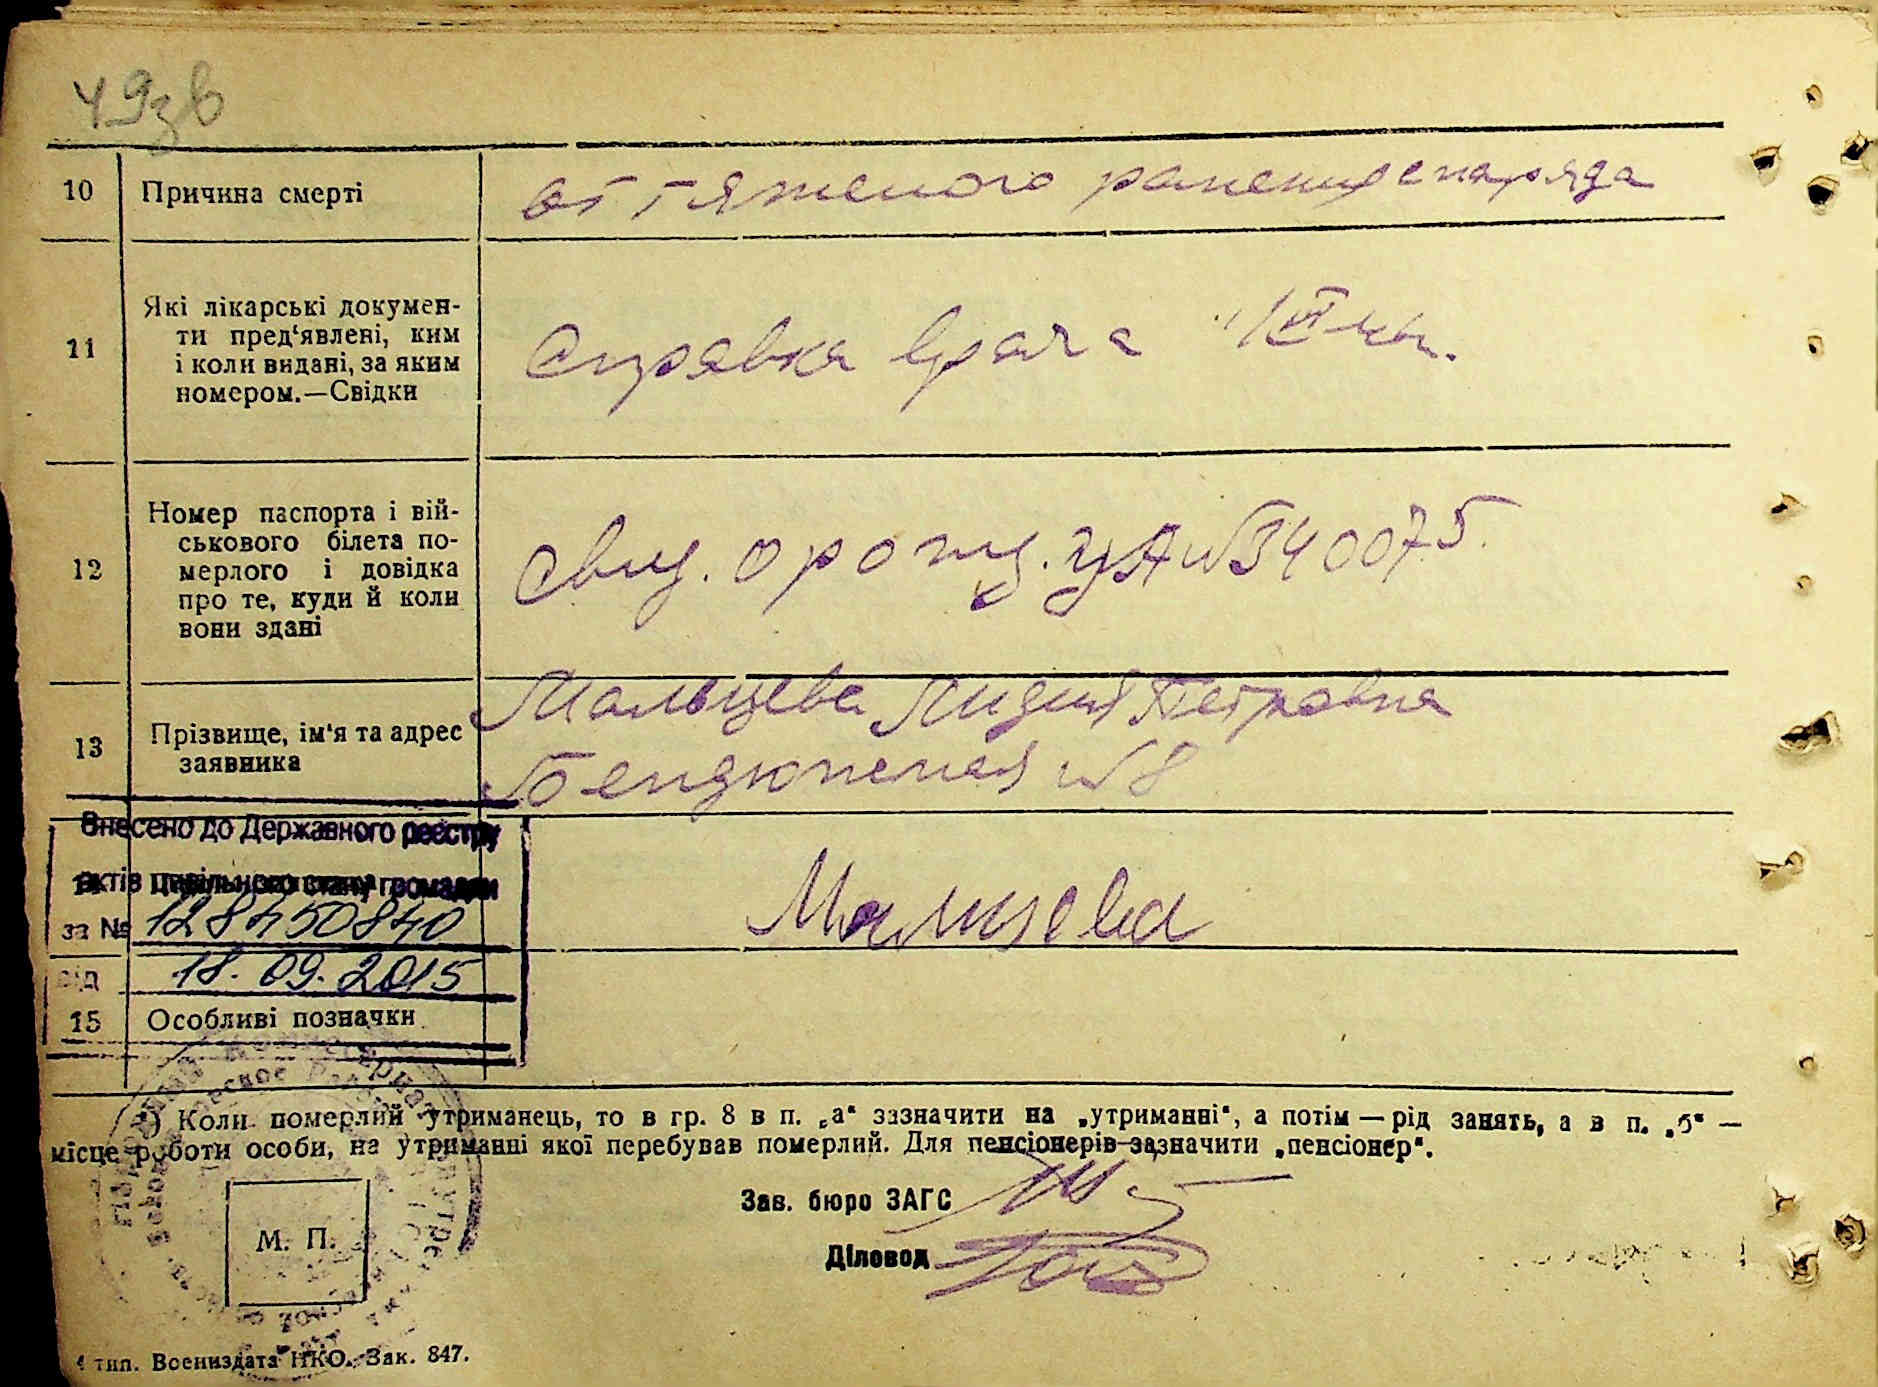 10 Причина смерті от тяжелого ранения снаряда
11 Які лікарські докумен-
ти пред'явлені, ким
і коли видані, за яким
номером.—Свідки
Справка врача
12 Номер паспорта і вій-
ськового білета по-
мерлого і довідка
про те, куди й коли
вони здані
Свид. о рожд. УА №340075.
13 Прізвище, ім'я та адрес
заявника
Мальцева Лидия Петровна
№ 8
Внесено до Державного реєстру
актів цивільного стану громадян
за № 128450840
від 18.09.2015
Мальцева
15 Особливі позначки
*) Коли померлий утриманець, то в гр. 8 в п. „а“ зазначити на „утриманні“, а потім — рід занять, а в п. „б“ —
місце роботи особи, на утриманні якої перебував померлий. Для пенсіонерів зазначити „пенсіонер“.
Зав. бюро ЗАГС
Діловод
М. П.
4 тип. Воениздата НКО. Зак. 847.